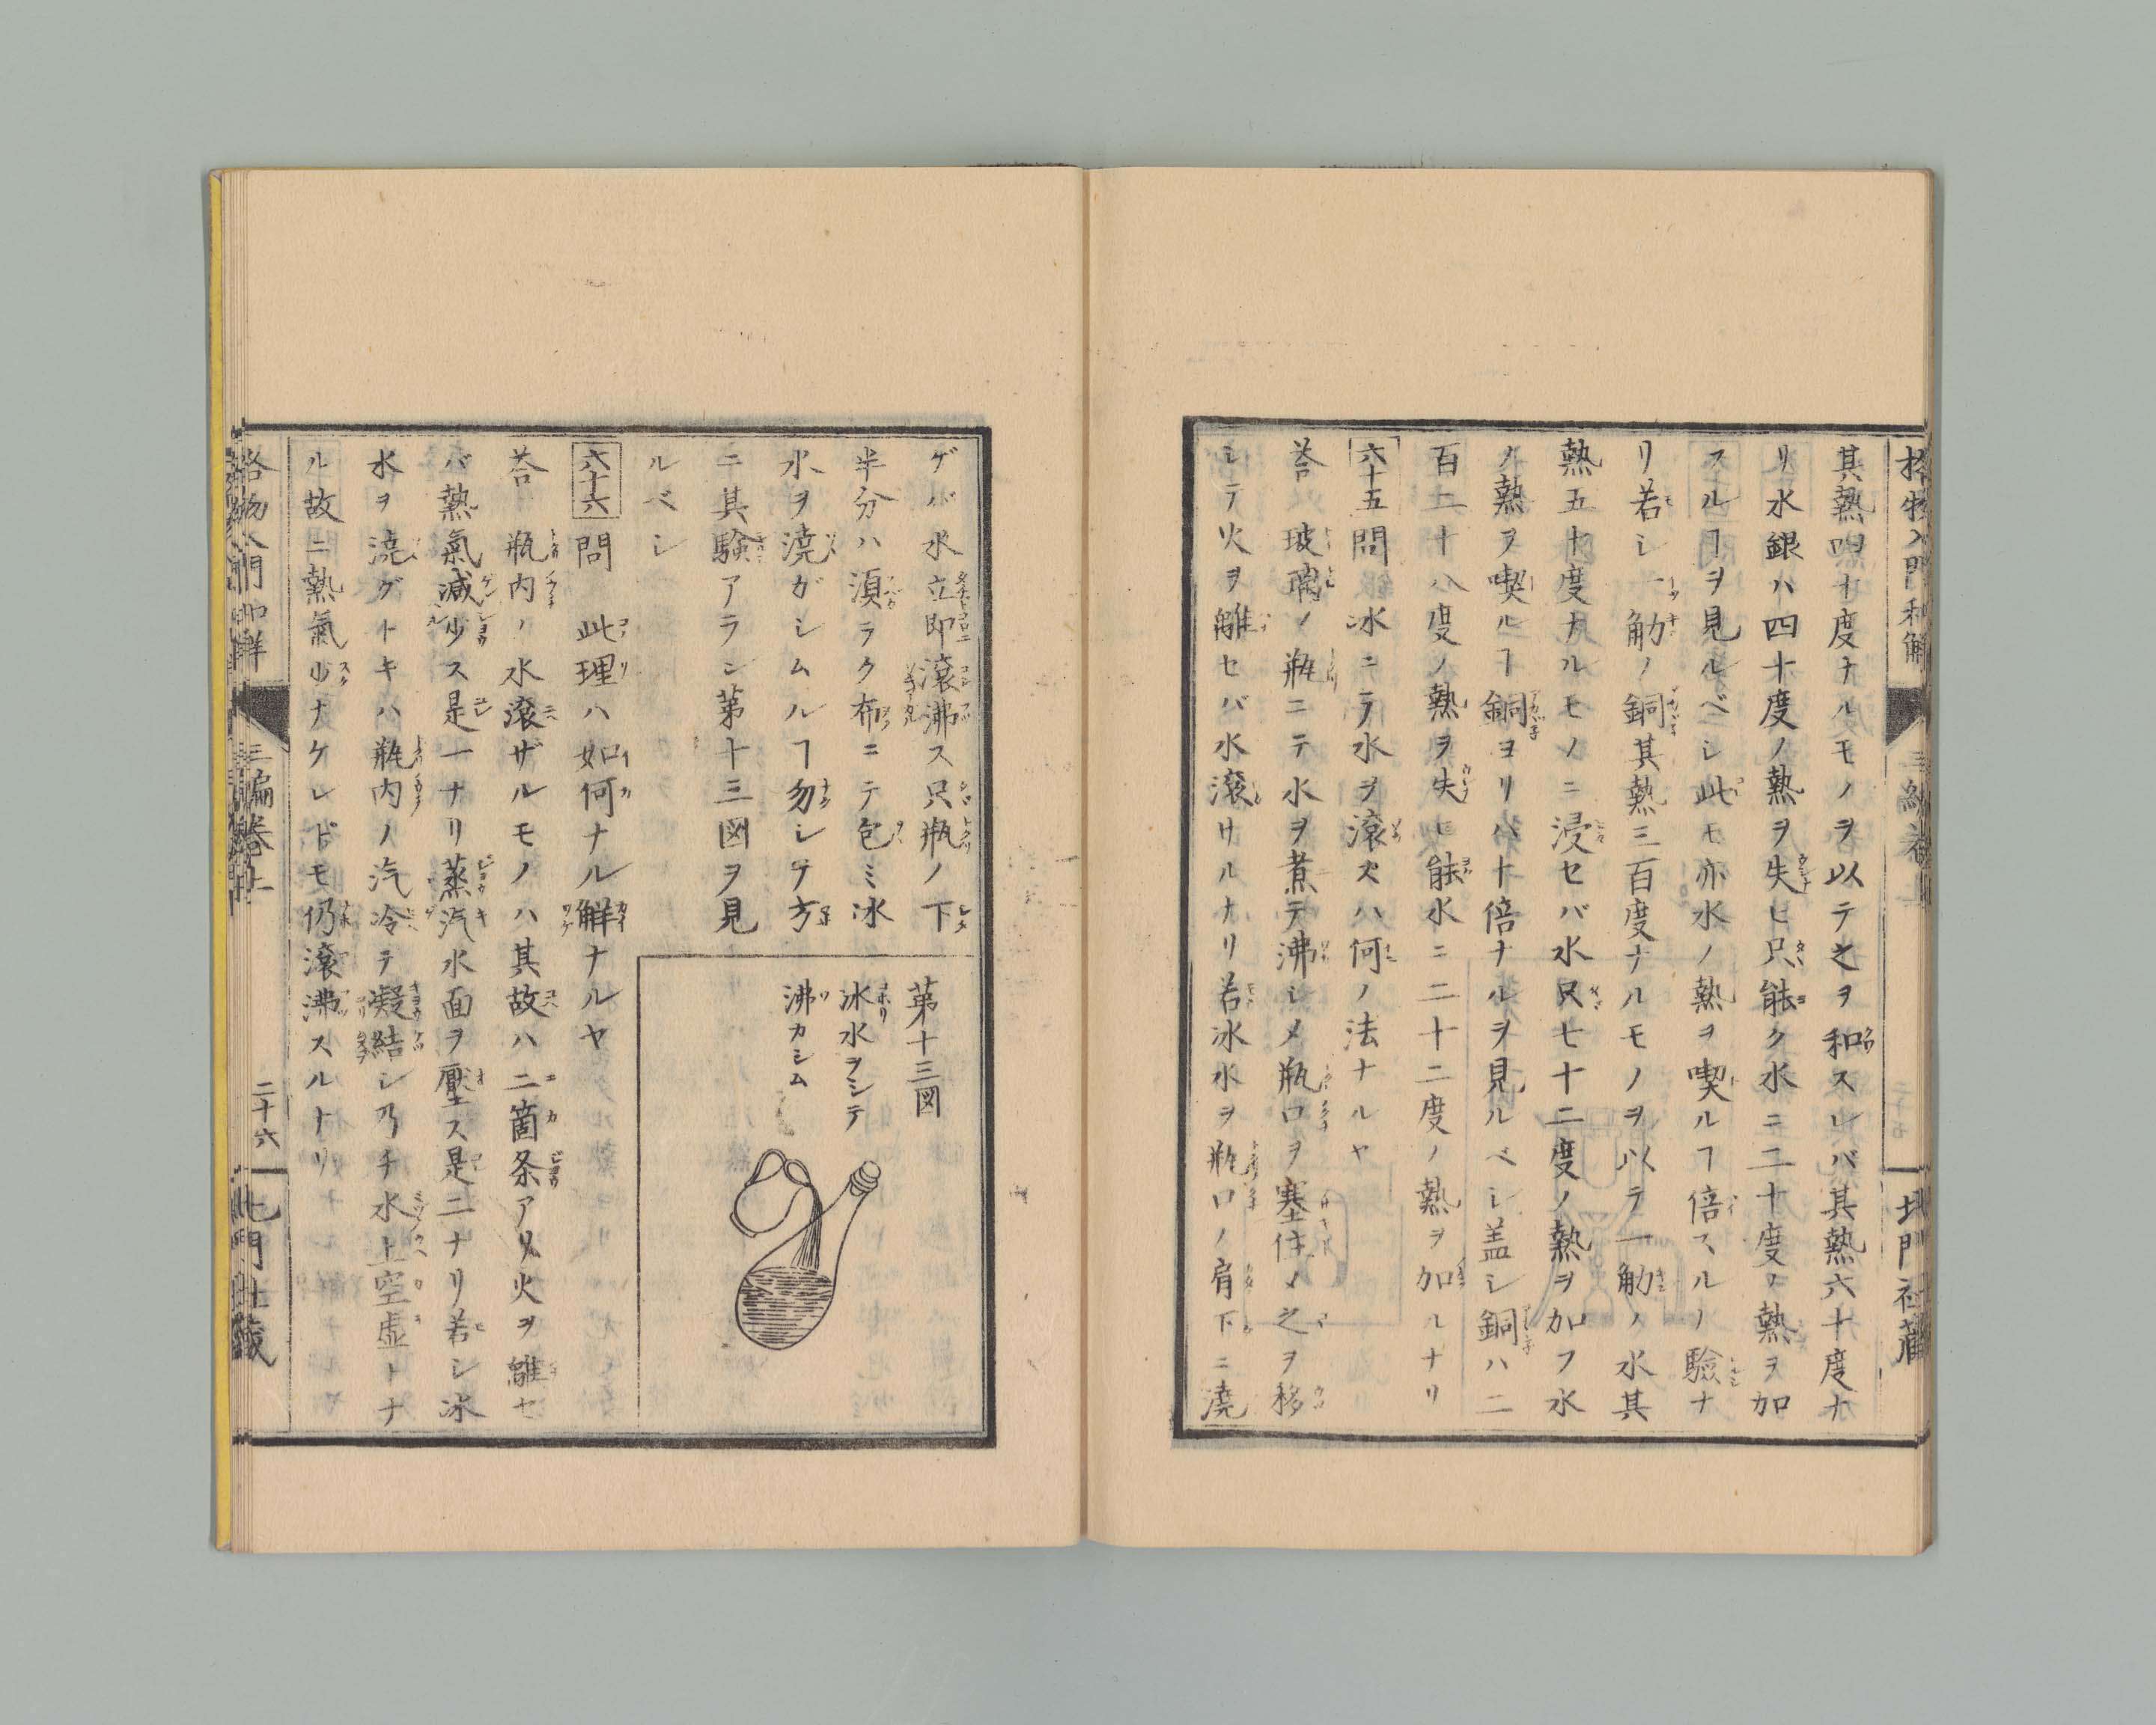 格物入門和解
三編卷上
北門社蔵
其熱四十度ナルモノヲ以テ之ヲ和スレバ其熱六十度ナ
リ水銀ハ四十度ノ熱ヲ失ヒ只能ク水ニ二十度ノ熱ヲ加
フルヿヲ見ルベシ此モ亦水ノ熱ヲ喫ルヿ倍スルノ驗ナ
リ若シ一觔ノ銅其熱三百度ナルモノヲ以テ一觔ノ水其
熱五十度ナルモノニ浸セバ水只七十二度ノ熱ヲ加フ水
ノ熱ヲ喫ルヿ銅ヨリハ十倍ナルヲ見ルベシ盖シ銅ハ二
百二十八度ノ熱ヲ失ヒ能水ニ二十二度ノ熱ヲ加ルナリ
六十五問 冰ニテ水ヲ滾スハ何ノ法ナルヤ
荅 玻璃ノ瓶ニテ水ヲ煮テ沸シメ瓶口ヲ塞住メ之ヲ移
シテ火ヲ離セバ水滾サルナリ若冰水ヲ瓶口ノ肩下ニ澆
ゲバ水立即滾沸ス只瓶ノ下
半分ハ須ラク布ニテ包ミ冰
水ヲ澆ガシムルヿ勿シテ方
ニ其験アラン第十三図ヲ見
ルベシ
第十三図
冰水ヲシテ
沸カシム
六十六問 此理ハ如何ナル解ナルヤ
荅 瓶内ノ水滾ザルモノハ其故ハ二箇条アリ火ヲ離セ
バ熱氣減少ス是一ナリ蒸汽水面ヲ壓ス是二ナリ若シ冰
水ヲ澆グトキハ瓶内ノ汽冷テ凝結シ乃チ水上空虚トナ
ル故ニ熱氣少ナケレドモ仍滾沸スルナリ
格物入門和解
三編卷上
二十六
北門社蔵